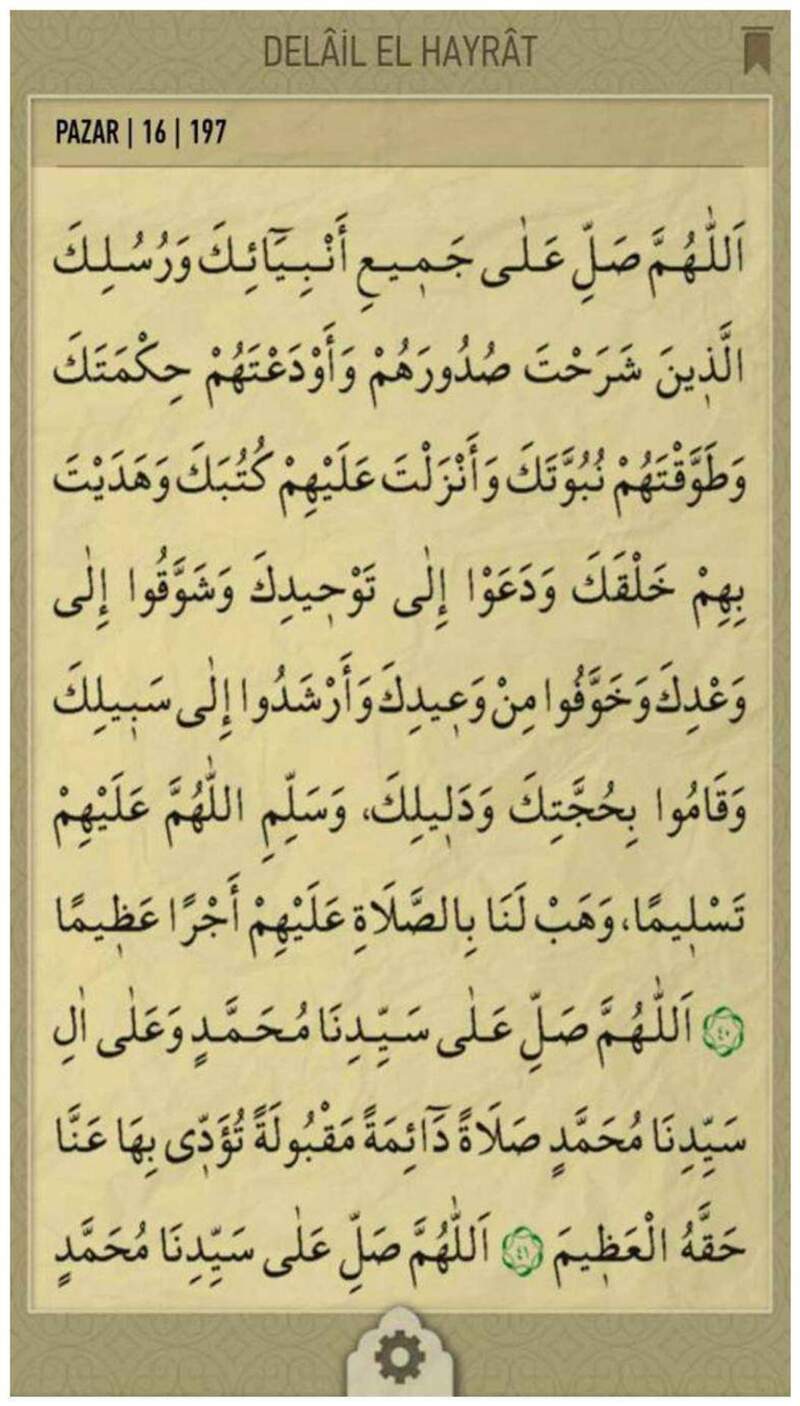 DELÂİL EL HAYRÂT
PAZAR | 16 | 197
اَللّٰهُمَّ صَلِّ عَلٰى جَمٖيعِ أَنْبِيَٓائِكَ وَرُسُلِكَ
الَّذٖينَ شَرَحْتَ صُدُورَهُمْ وَأَوْدَعْتَهُمْ حِكْمَتَكَ
وَطَوَّقْتَهُمْ نُبُوَّتَكَ وَأَنْزَلْتَ عَلَيْهِمْ كُتُبَكَ وَهَدَيْتَ
بِهِمْ خَلْقَكَ وَدَعَوْا إِلٰى تَوْحٖيدِكَ وَشَوَّقُوا إِلٰى
وَعْدِكَ وَخَوَّفُوا مِنْ وَعٖيدِكَ وَأَرْشَدُوا إِلٰى سَبٖيلِكَ
وَقَامُوا بِحُجَّتِكَ وَدَلٖيلِكَ، وَسَلِّمِ اللّٰهُمَّ عَلَيْهِمْ
تَسْلٖيمًا، وَهَبْ لَنَا بِالصَّلَاةِ عَلَيْهِمْ أَجْرًا عَظٖيمًا
﴿٤٠﴾ اَللّٰهُمَّ صَلِّ عَلٰى سَيِّدِنَا مُحَمَّدٍ وَعَلٰى اٰلِ
سَيِّدِنَا مُحَمَّدٍ صَلَاةً دَٓائِمَةً مَقْبُولَةً تُؤَدّٖى بِهَا عَنَّا
حَقَّهُ الْعَظٖيمَ ﴿٤١﴾ اَللّٰهُمَّ صَلِّ عَلٰى سَيِّدِنَا مُحَمَّدٍ